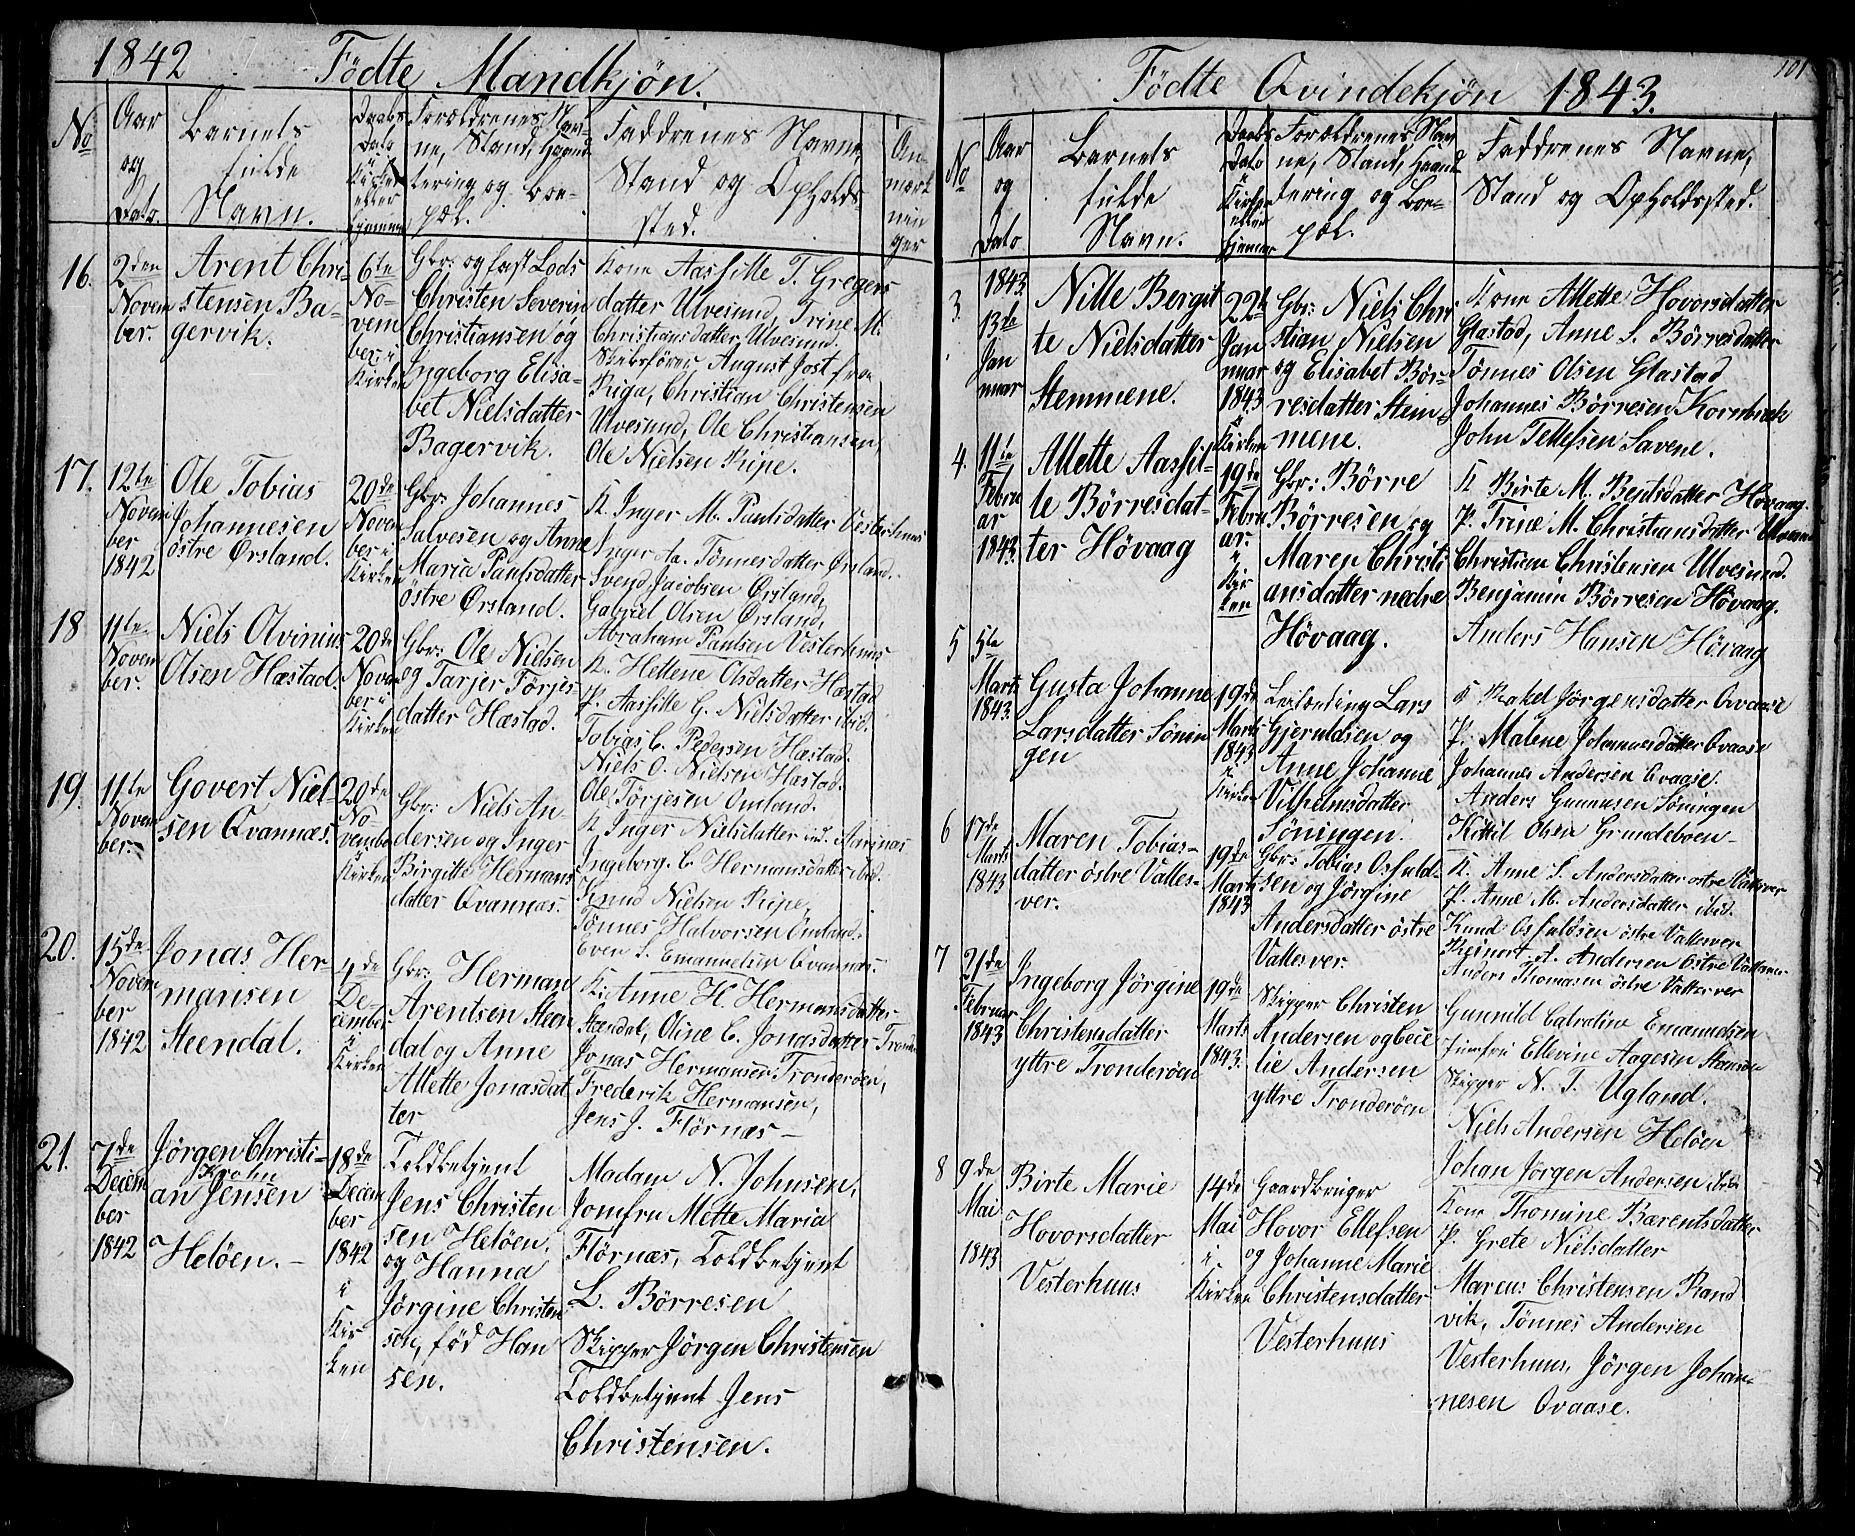 1842
Födte Mandkjön.
No
Aar
og
Dato.
Barnets
fulde
Navn.
Daabs
Dato
i Kirken
eller
hjemme
Foraldrenes Nav-
ne, Stand, Haand-
tering og Boe-
pæl.
Faddrenes Navne,
Stand og Opholds-
sted.
An-
mærk
nin
ger
16.
2den
Novem
ber.
Arent Chri-
stensen Ba-
gervik.
6te
No-
vem
ber i
Kirken
Gbr: og fast Lods
Christen Severin
Christiansen og
Ingeborg Elisa-
bet Nielsdatter
Bagervik.
Kone Aassille T. Gregers
datter Ulvesund, Trine M.
Christiansdatter, Ulvesund.
Skibsfører August Jost fra
Riga, Christian Christensen
Ulvesund, Ole Christiansen,
Ole Nielsen Ripe.
17.
12te
Novem
ber
1842
Ole Tobias
Johannesen
östre Ørsland.
20de
Novem
ber i
Kirken
Gbr: Johannes
Salvesen og Anne
Maria Paulsdatter
östre Ørsland.
K. Inger M. Paulsdatter Vesterhuus
Inger Ma. Tönnesdatter Ørsland.
Svend Jacobsen Ørsland,
Gabriel Olsen Ørsland,
Abraham Paulsen Vesterhuus
18
11te
Novem
ber.
Niels Olvinius
Olsen Hæstad.
20de
Novem
ber i
Kirken
Gbr: Ole Nielsen
og Tarjer Törjes
datter Hæstad.
K. Hellene Olsdatter Hæstad
P. Aassille G. Nielsdatter ibid.
Tobias C. Pedersen Hæstad.
Niels O. Nielsen Hæstad.
Ole Törjesen Omland.
19.
11te
Novem
ber.
Govert Niel-
sen Qvannæs.
20de
No-
vember
i
Kirken
Gbr: Niels An
dersen og Inger
Birgitte Hermans
datter Qvannæs.
K. Inger Nielsdatter ind. Aarsnæs
Ingeborg C. Hermansdatter ibid.
Knud Nielsen Ripe,
Tönnes Halvorsen Omland.
Even S. Emanuelsen Qvannæs.
20.
15de
Novem
ber
1842
Jonas Her
mansen
Steendal.
4de
De-
cember
i
Kirken
Gbr: Herman
Arentsen Steen
dal og Anne
Allette Jonasdat
ter
K. Anne H. Hermansdatter
Steendal, Oline C. Jonasdatter
Jonas Hermansen Tronderöen,
Frederik Hermansen,
Jens J. Flörnæs —
21.
7de
Decem
ber
1842
Jörgen Christi-
Krohn
an Jensen
Helöen. —
18de
Decem
ber
1842
i
Kir
ken
Toldbetjent
Jens Christen
sen Helöen.
og Hanna
Jörgine Christen
sen, föd Han
sen.
Madam N. Johnsen,
Jomfru Mette Maria
Flörnæs, Toldbetjent
L. Börresen
Skipper Jörgen Christensen
Toldbetjent Jens
Christensen.
101
Födte Qvindekjön 1843.
No
Aar
og
Dato
Barnets
fulde
Navn.
Daabs
Dato
i
Kirken
eller
hjemme
Foraldrenes Nav
ne, Stand, Haand
tering og Boe-
pæl.
Faddrenes Navne,
Stand og Opholdssted.
3.
1843
13de
Jan
nuar
Nille Bergit
te Nielsdatter
Stemmene.
22de
Jan
nuar
1843
Kirken
Gbr: Niels Chri
stian Nielsen
og Elisabet Bör-
resdatter Stem-
mene.
Kone Allette Hovorsdatter
Glastad, Anne S. Börresdatter
Tönnes Olsen Glastad
Johannes Börresen Kornbræk
John Tellefsen Savene.
4.
11te
Febru
ar
1843.
Allette Aassil-
le Börresdat-
ter Hövaag
19de
Febru
ar.
i
Kir
ken
Gbr: Börre
Börresen og
Maren Christi
ansdatter nedre
Hövaag.
K Birte M. Bentsdatter Hövaag.
P. Trine M. Christiansdatter Ulvesund
Christian Christensen Ulvesund.
Benjamin Börresen Hövaag.
Anders Hansen Hövaag
5
5te
Marts
1843.
Gusta Johanne
Larsdatter Sönin
gen
19de
Marts
1843
i
Kirken
Leilænding Lars
Gjeruldsen og
Anne Johanne
Vilhelmsdatter
Söningen.
K Rakel Jörgensdatter Qvaase
P. Malene Johannesdatter Qvaase
Johannes Andersen Qvaase.
Anders Gunnusen Söningen
Kittil Olsen Grundeboen —
6
17de
Marts
1843
Maren Tobias-
datter östre Valles-
ver.
19de
Marts
1843
Gbr: Tobias Osfuld-
sen og Jörgine
Andersdatter östre
Vallesver.
K. Anne S. Andersdatter östre Vallesver
P. Anne M. Andersdatter ibid.
Knud Osfuldsen östre Vallesver
Reinert A. Andersen östre Vallesver
Anders Thomasen östre Vallesver
7
21de
Februar
1843
Ingeborg Jörgine
Christensdatter
yttre Tronderöen
19de
Marts
1843.
Skipper Christen
Andersen og Ceci
lie Andersen
yttre Tronderöen
Gunnild Catroline Emanuelsen
Jomfru Ellevine Aagesen
Skipper N. T. Ugland.
Niels Andersen Helöen
Johan Jörgen Andersen
8
9de
Mai
1843
Birte Marie
Hovorsdatter
Vesterhuus
14de
Mai
i
Kirken
Gaardbruger
Hovor Ellefsen
og Johanne Marie
Christensdatter
Vesterhuus
Kone Thomine Bærentsdatter
P. Grete Nielsdatter
Marcus Christensen Rand
vik, Tönnes Andersen
Vesterhuus, Jörgen Johan-
nesen Qvaase.